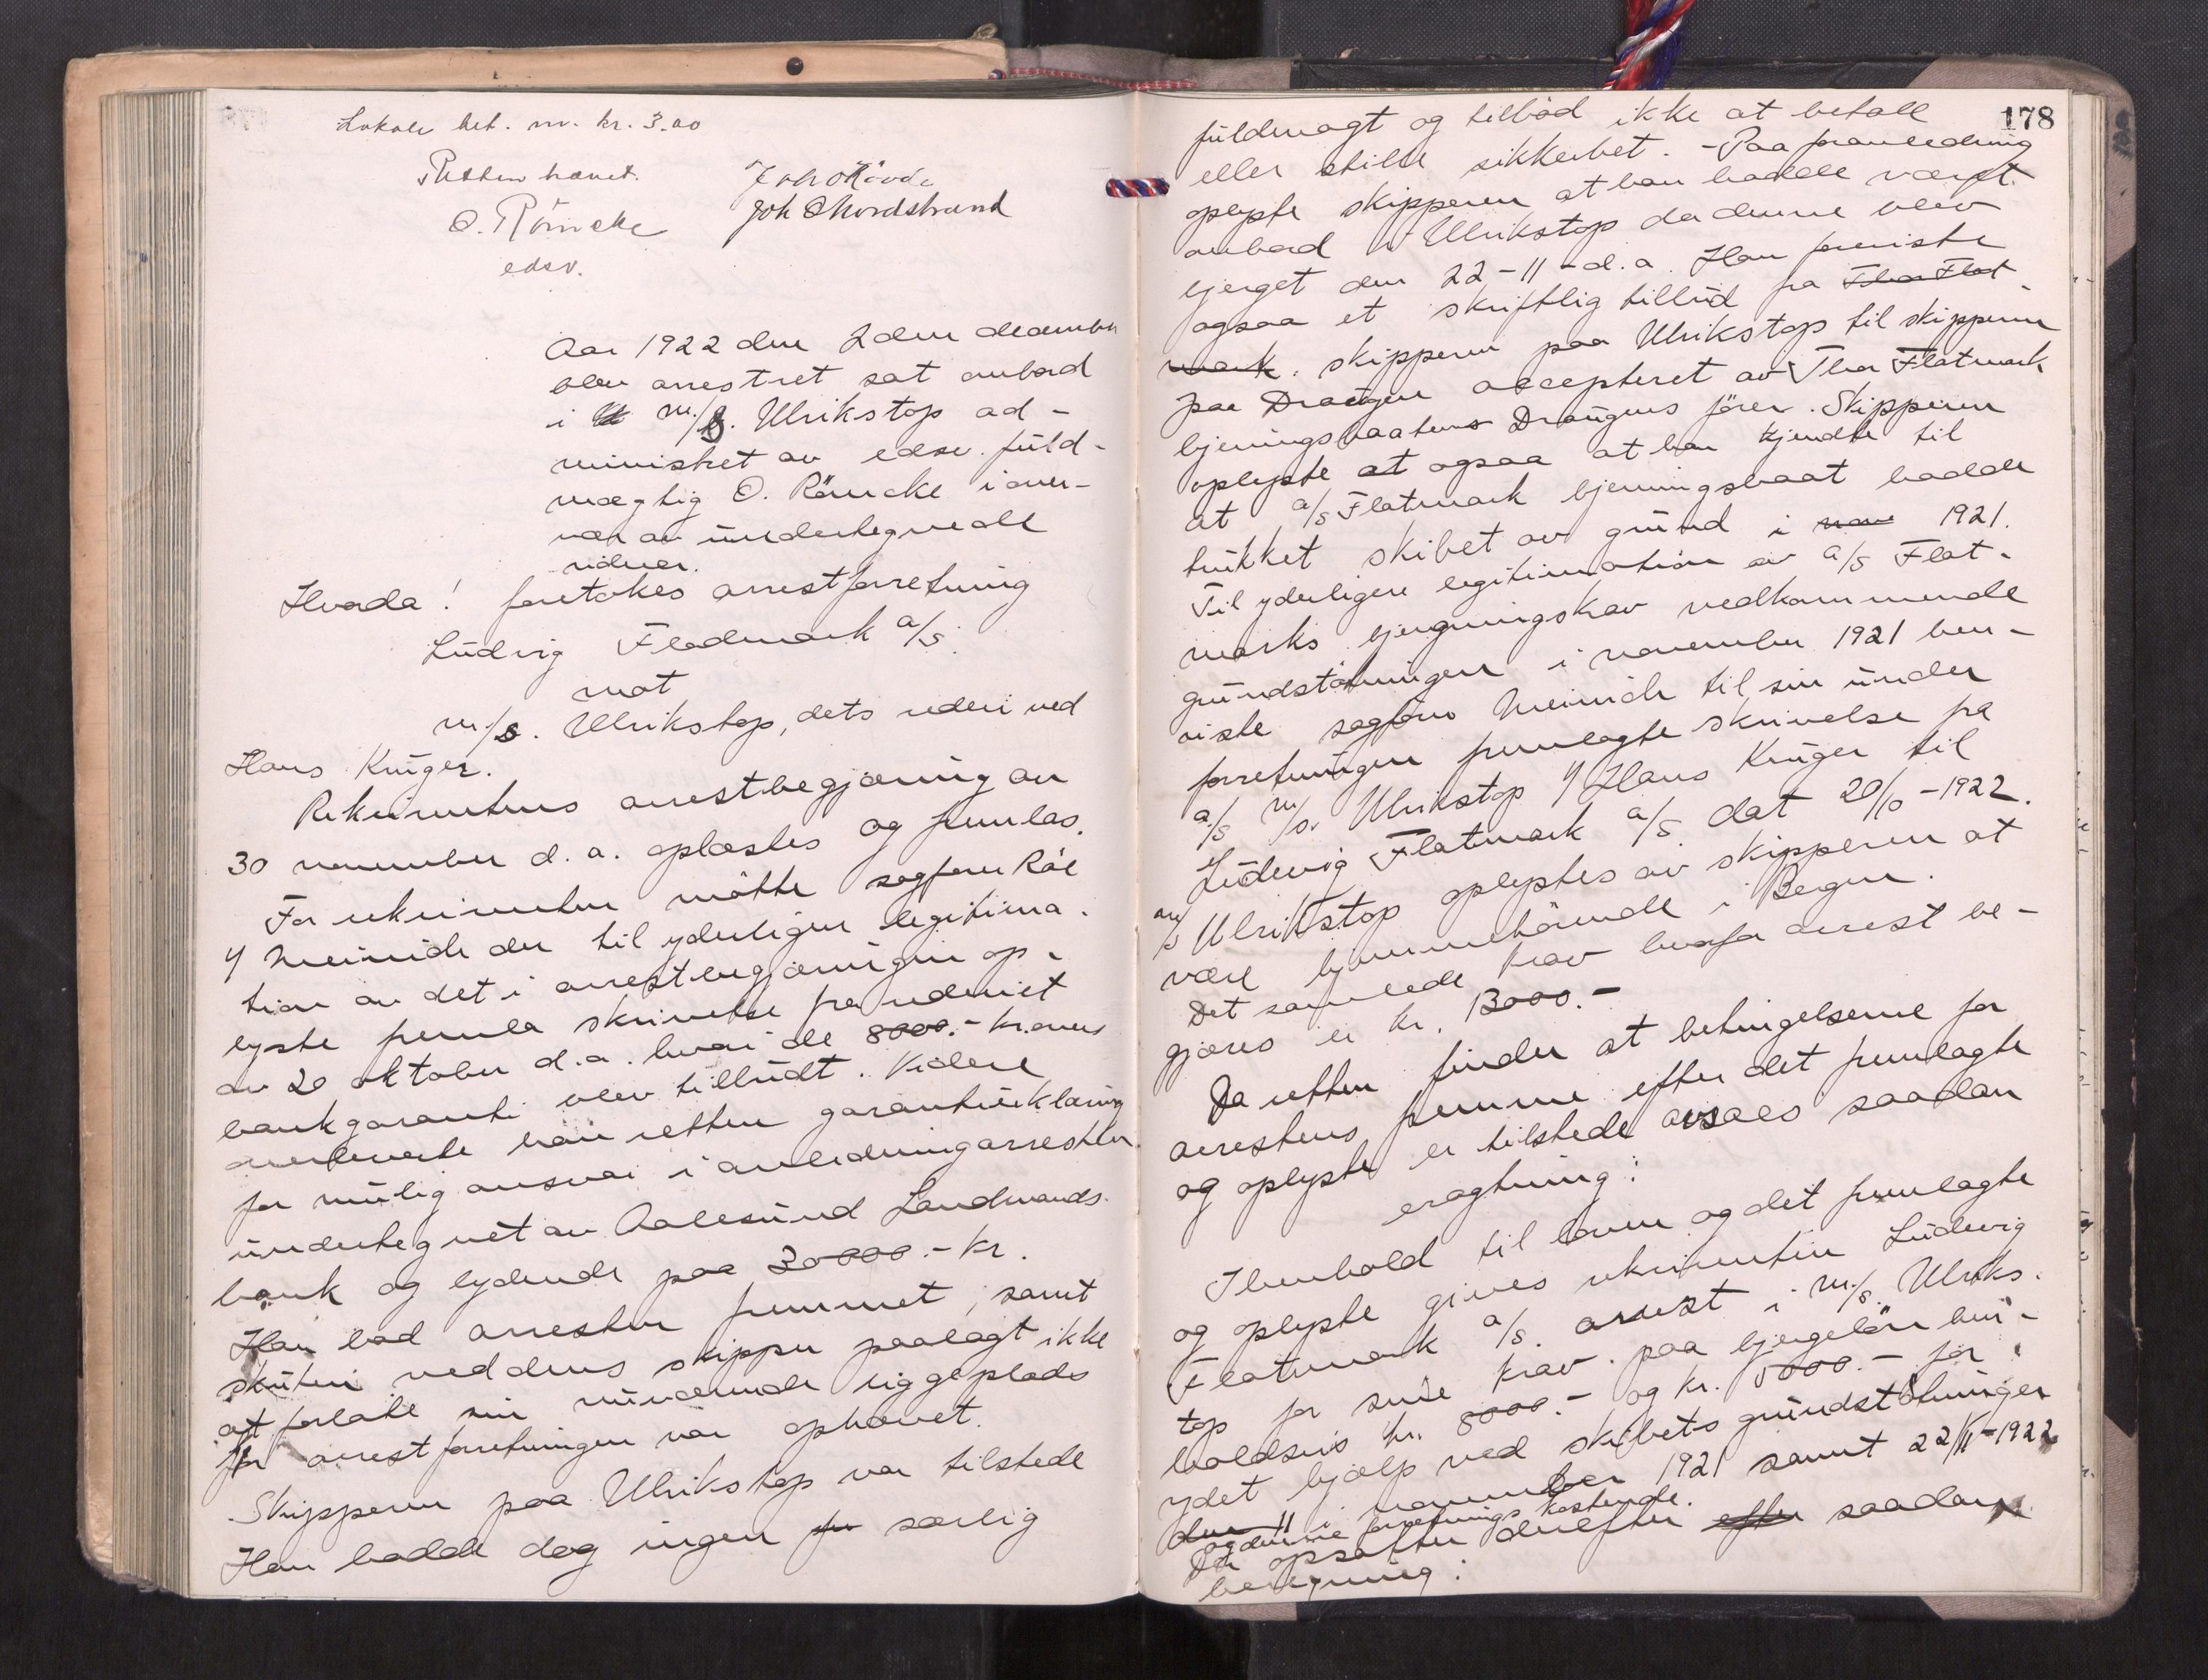 Lokale bet. m. kr. 3.00
Retten hævet.
O. Römcke
edsv.
Joh O Hovde
Joh O Nordstrand
Aar 1922 den 2den december
blev arrestret sat ombord
i m/s. Ulrikstop ad-
ministret av edsv. fuld-
mægtig O. Römcke i over-
vær av undertegnede
vidner.
Hvorda! foretokes arrestforretning
Ludvig Fladmark a/s.
mot
m/s. Ulrikstop, dets rederi ved
Hans Krüger.
Rekvirentens arrestbegjæring av
30 november d.a. oplæstes og fremlas.
For rekvirenten møtte sagfører Röe
y Meinich der til yderligere legitima-
tion av det i arrestbegjæringen op-
lyste fremla skrivelse fra rederiet
av 20 oktober d.a. hvori de 8000.- kroners
bankgaranti blev tilbudt. Videre
overleverte han retten garantierklæring
for mulig ansvar i anledning arresten
undertegnet av Aalesund Landmands-
bank og lydende paa 30000.- kr.
Han bad arresten fremmet, samt
skuten ved dens skipper paalagt ikke
at forlate sin nuværende liggeplads
før arrestforretningen var ophævet.
Skipperen paa Ulrikstop var tilstede
Han hadde dog ingen særlig
178
fuldmagt og tilbød ikke at betale
eller stille sikkerhet. - Paa foranledning
oplyste skipperen at han hadde været
ombord i Ulrikstop da denne blev
bjerget den 22-11-d.a. Han foreviste
ogsaa et skriftlig tilbud fra Thor Flat-
mark. skipperen paa Ulrikstop til skipperen
paa Draugen accepteret av Thor Flatmark
bjerningsbaatens Draugens fører. Skipperen
oplyste at ogsaa at han kjendte til
at a/s Flatmark bjerningsbaat hadde
trukket skibet av grund i nov 1921.
Til yderligere legitimation av a/s Flat-
marks bjergningskrav vedkommende
grundstøtningen i november 1921 hen-
viste sagfører Meinich til sin under
forretningen fremlagte skrivelse fra
a/s m/s. Ulrikstop y Hans Krüger til
Ludvig Flatmark a/s. dat 20/10-1922.
m/s Ulrikstop oplystes av skipperen at
være hjemmehørende i Bergen.
Det samlede krav hvorfor arrest be-
gjæres er kr. 13000.-
Da retten finder at betingelserne for
arrestens fremme efter det fremlagte
og oplyste er tilstede avsaes saadan
eragtning:
I henhold til loven og det fremlagte
og oplyste gives rekvirenten Ludvig
Flatmark a/s. arrest i m/s. Ulriks-
top for sine krav paa bjergeløn hen-
holdsvis kr. 8000.- og kr. 5000.- for
ydet hjælp ved skibets grundstøtninger
den 11 i november 1921 samt 22/11-1922
og denne forretnings kostende.
Der opsattes derefter efter saadan
beregning: